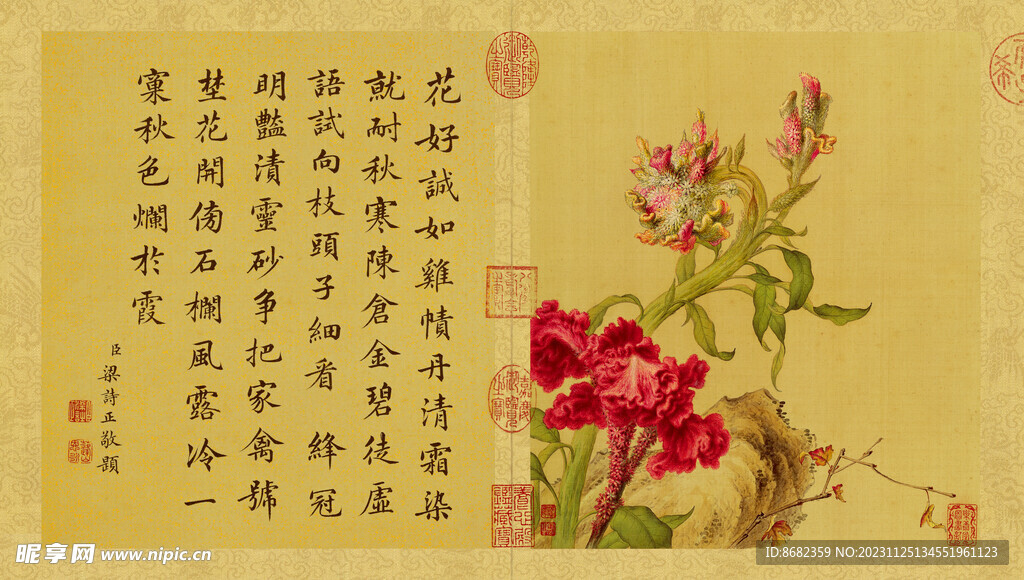 花好誠如雞幘丹清霜染
就耐秋寒陳倉金碧徒虛
語試向枝頭子細看 絳冠
明豔漬靈砂争把家禽號
埜花開傍石欄風露冷一
窠秋色爛於霞
臣梁詩正敬題
昵享网 www.nipic.cn
ID:8682359 NO:20231125134551961123